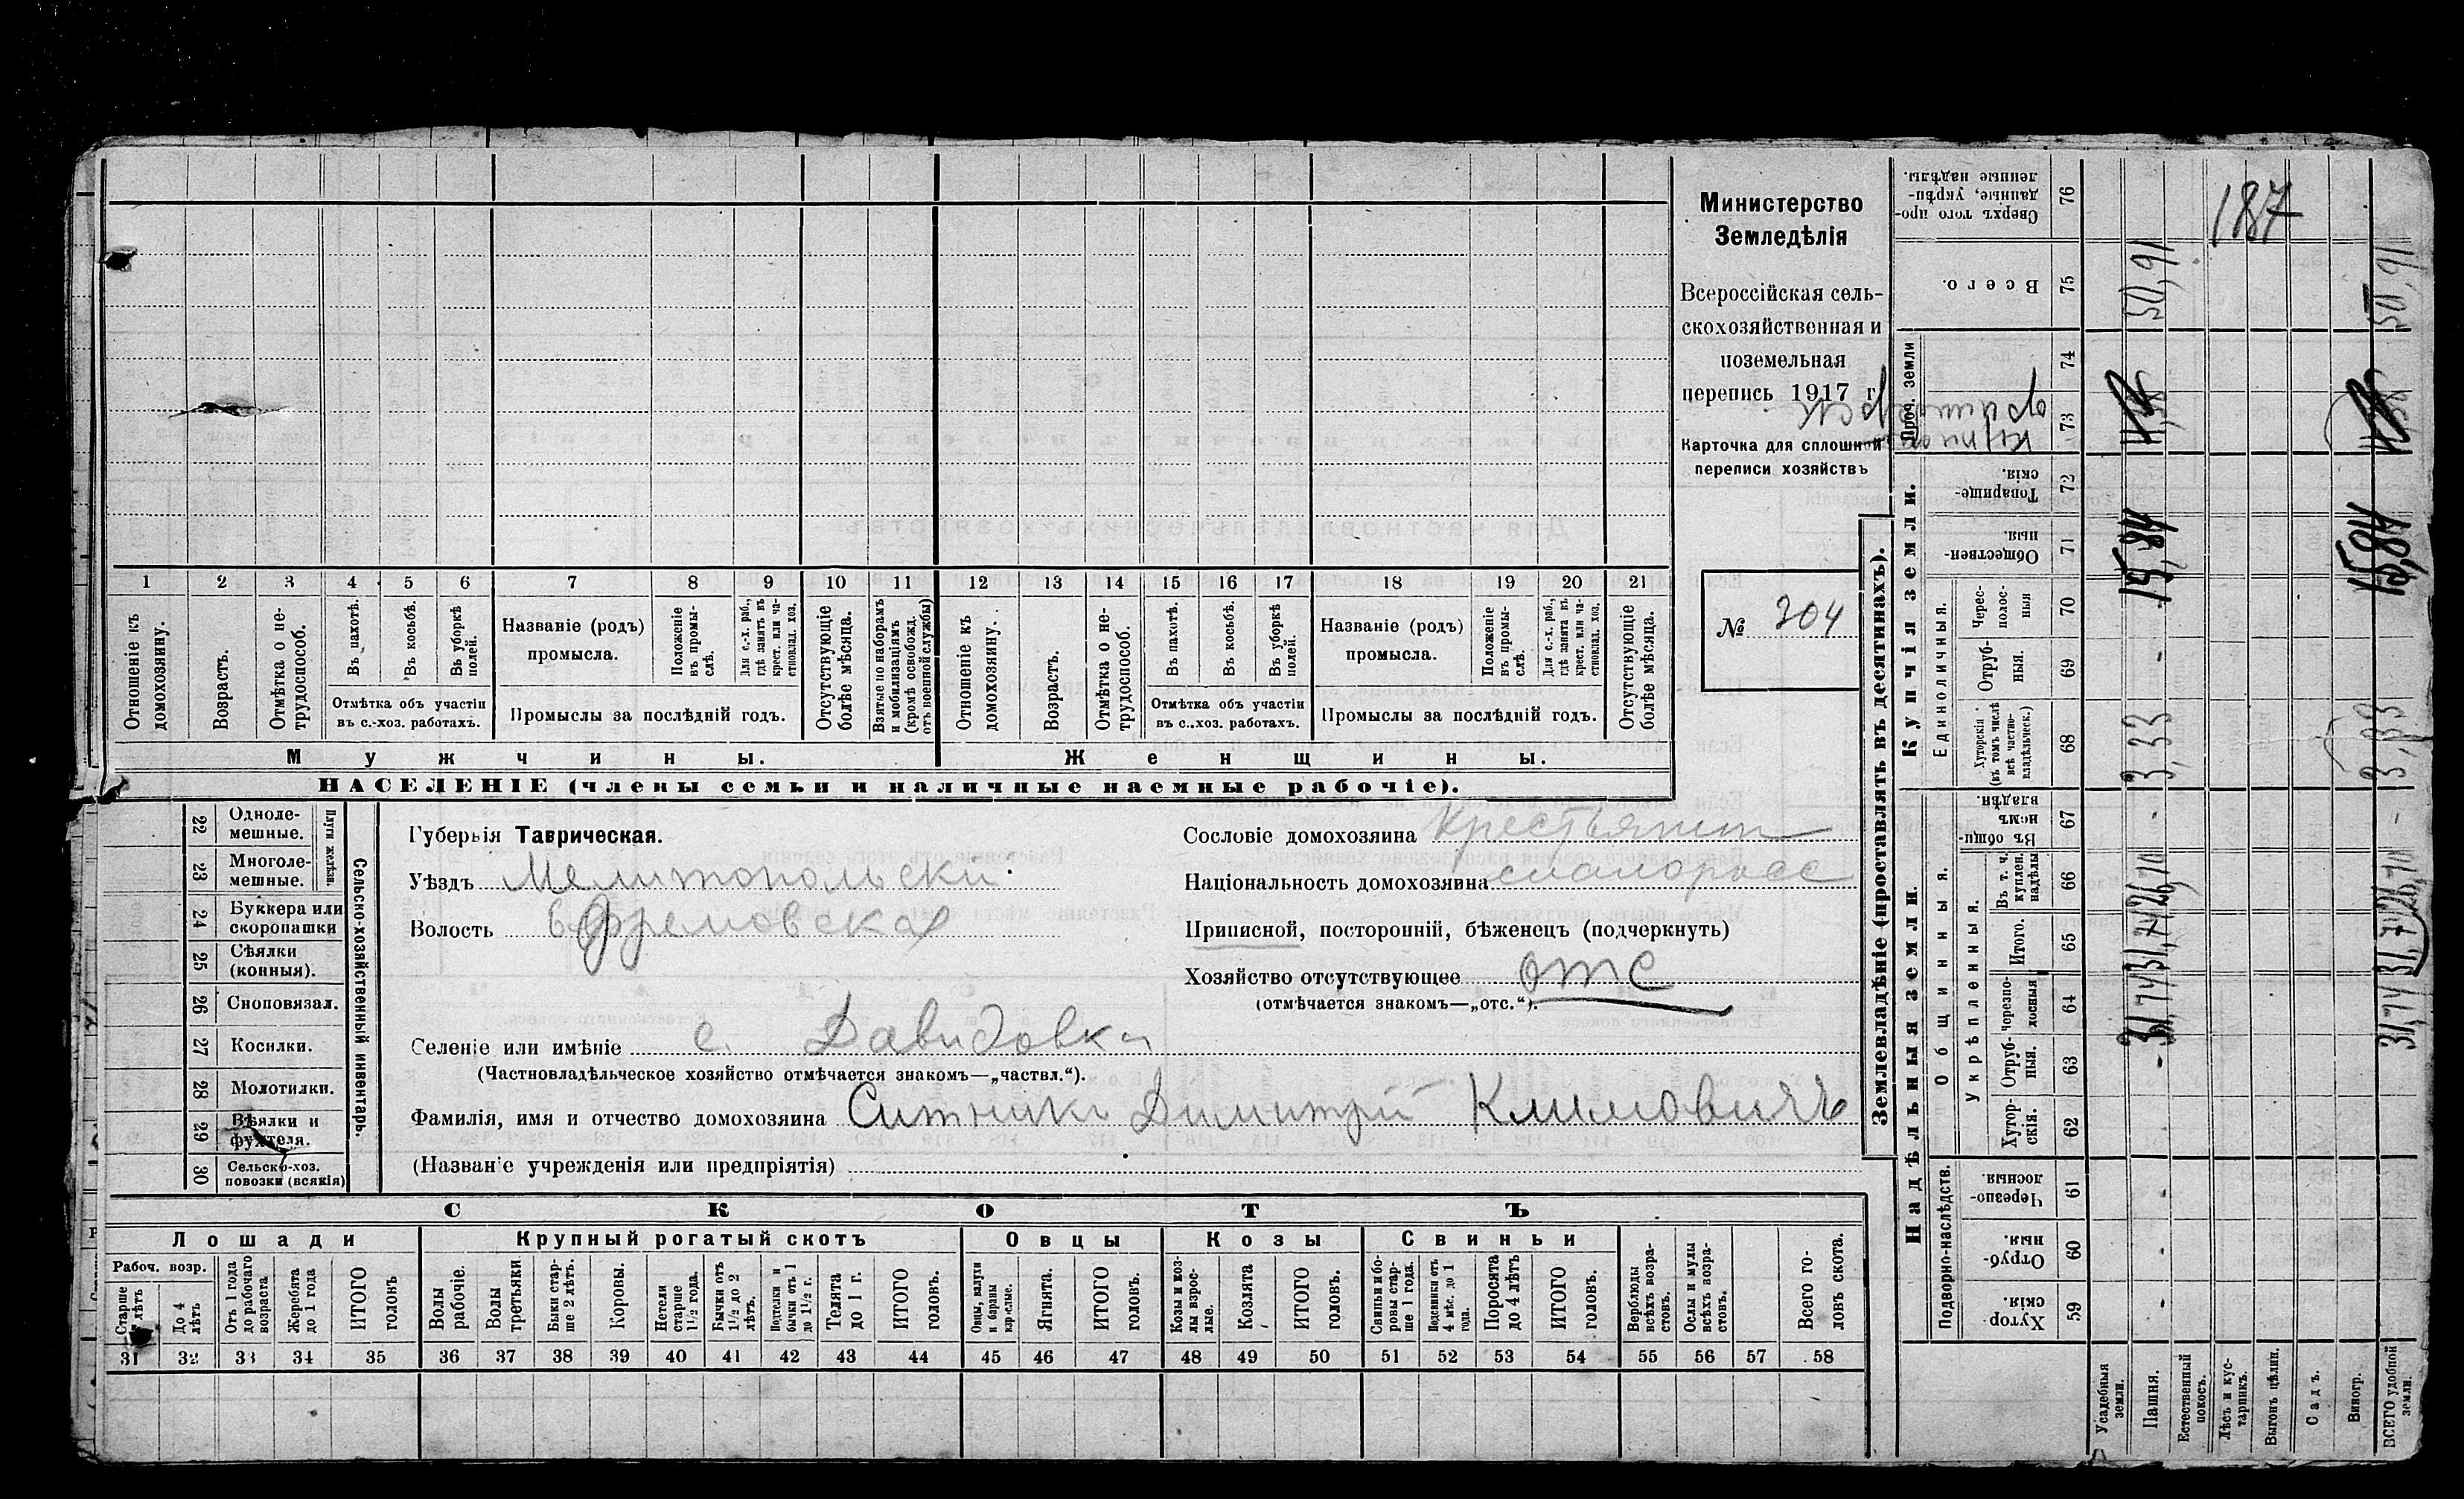 1 2 3 4 5 6 7 8 9 10 11 12 13 14 15 16 17 18 19 20 21
Отношеніе къ домохозяину.
Возрастъ.
Отмѣтка о не-
трудоспособ.
Въ пахотѣ.
Въ косьбѣ.
Въ уборкѣ
полей.
Отмѣтка объ участіи
въ с.-хоз. работахъ.
Названіе (родъ)
промысла.
Положеніе
въ промы-
слѣ.
Для с.-х. раб.,
гдѣ занятъ въ
крест. или ча-
стновлад. хоз.
Промыслы за послѣдній годъ.
Отсутствующіе
болѣе мѣсяца.
Взятые по наборамъ
и мобилизаціямъ
(кромѣ освобожд.
отъ военной службы)
Отношеніе къ
домохозяину.
Возрастъ.
Отмѣтка о не-
трудоспособ.
Въ пахотѣ.
Въ косьбѣ.
Въ уборкѣ
полей.
Отмѣтка объ участіи
въ с.-хоз. работахъ.
Названіе (родъ)
промысла.
Положеніе
въ промы-
слѣ.
Для с.-х. раб.,
гдѣ занята въ
крест. или ча-
стновлад. хоз.
Промыслы за послѣдній годъ.
Отсутствующіе
болѣе мѣсяца.
Мужчины.
Женщины.
НАСЕЛЕНІЕ (члены семьи и наличные наемные рабочіе).
Министерство
Земледѣлія
Всероссійская сель-
скохозяйственная и
поземельная
перепись 1917 г.
Карточка для сплошной
переписи хозяйствъ
№ 304
22 Одноле-
мешные.
23 Многоле-
мешные.
Плуги желѣзн.
24 Буккера или
скоропашки
25 Сѣялки
(конныя).
26 Сноповязал.
27 Косилки.
28 Молотилки.
29 Вѣялки и
фухтеля.
30 Сельско-хоз.
повозки (всякія)
Сельско-хозяйственный инвентарь.
Губернія Таврическая.
Уѣздъ Мелитопольскій
Волость Ефремовская
Сословіе домохозяина крестьянин
Національность домохозяина малоросс
Приписной, посторонній, бѣженецъ (подчеркнуть)
Хозяйство отсутствующее отс
(отмѣчается знакомъ—„отс.“).
Селеніе или имѣніе с. Давидовка
(Частновладѣльческое хозяйство отмѣчается знакомъ—„частвл.“).
Фамилія, имя и отчество домохозяина Ситникъ Димитрій Климовичъ
(Названіе учрежденія или предпріятія)
СКОТЪ
Лошади
Крупный рогатый скотъ
Овцы
Козы
Свиньи
Рабоч. возр.
Старше
4 лѣтъ
До 4
лѣтъ
Отъ 1 года
до рабочаго
возраста
Жеребята
до 1 года
ИТОГО
головъ
Волы
рабочіе.
Волы
третьяки
Быки стар-
ше 2 лѣтъ.
Коровы.
Нетели
старше
1½ года.
Бычки отъ
1½ до 2
лѣтъ.
Подтелки и
бычки отъ 1
до 1½ г.
Телята
до 1 г.
ИТОГО
головъ.
Овцы, валухи
и бараны
взрослые.
Ягнята.
ИТОГО
головъ.
Козы и коз-
лы взрос-
лые.
Козлята
ИТОГО
головъ.
Свиньи и бо-
ровы стар-
ше 1 года.
Подсвинки отъ
4 мѣс. до 1
года.
Поросята
до 4 лѣтъ
ИТОГО
головъ.
Верблюды
всѣхъ возра-
стовъ.
Ослы и мулы
всѣхъ возра-
стовъ.
Всего го-
ловъ скота.
31 32 33 34 35 36 37 38 39 40 41 42 43 44 45 46 47 48 49 50 51 52 53 54 55 56 57 58
Землевладѣніе (проставлять въ десятинахъ).
Надѣльныя земли.
Купчія земли.
Проч. земли
Подворно-наслѣдств.
Общинныя.
Укрѣпленныя.
Единоличныя.
Хутор-
скія. 59
Отруб-
ныя. 60
Черезпо-
лосныя. 61
Хутор-
скія. 62
Отруб-
ныя. 63
Черезпо-
лосныя 64
Итого. 65
Въ т. ч.
куплен.
надѣлы 66
Въ общи-
нномъ
владѣн. 67
Хуторскія
(въ томъ числѣ
всѣ частно-
владѣльческ.) 68
Отруб-
ныя. 69
Черес-
полос-
ныя 70
Обществен-
ныя. 71
Товарище-
скія. 72
73
74
Всего. 75
Сверхъ того про-
данные, укрѣп-
ленные надѣлы. 76
Усадебныя
земли.
Пашня.
Естественный
покосъ.
Лѣсъ и кус-
тарникъ.
Выгонъ цѣлин.
Садъ.
Виногр.
ВСЕГО удобной
земли.
31,74 31,74 26,70 3,33 15,84 50,91
31,74 31,74 26,70 3,33 15,84 50,91
187